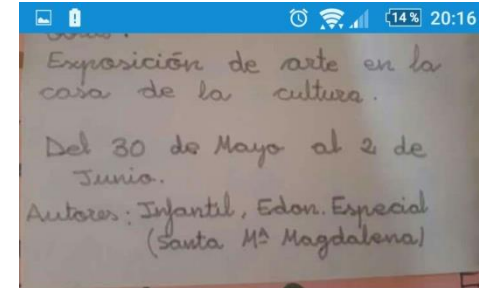 14 % 20:16
Exposición de arte en la
casa de la cultura.
Del 30 de Mayo al 2 de
Junio.
Autores: Infantil, Edon. Especial
(Santa Mª Magdalena)